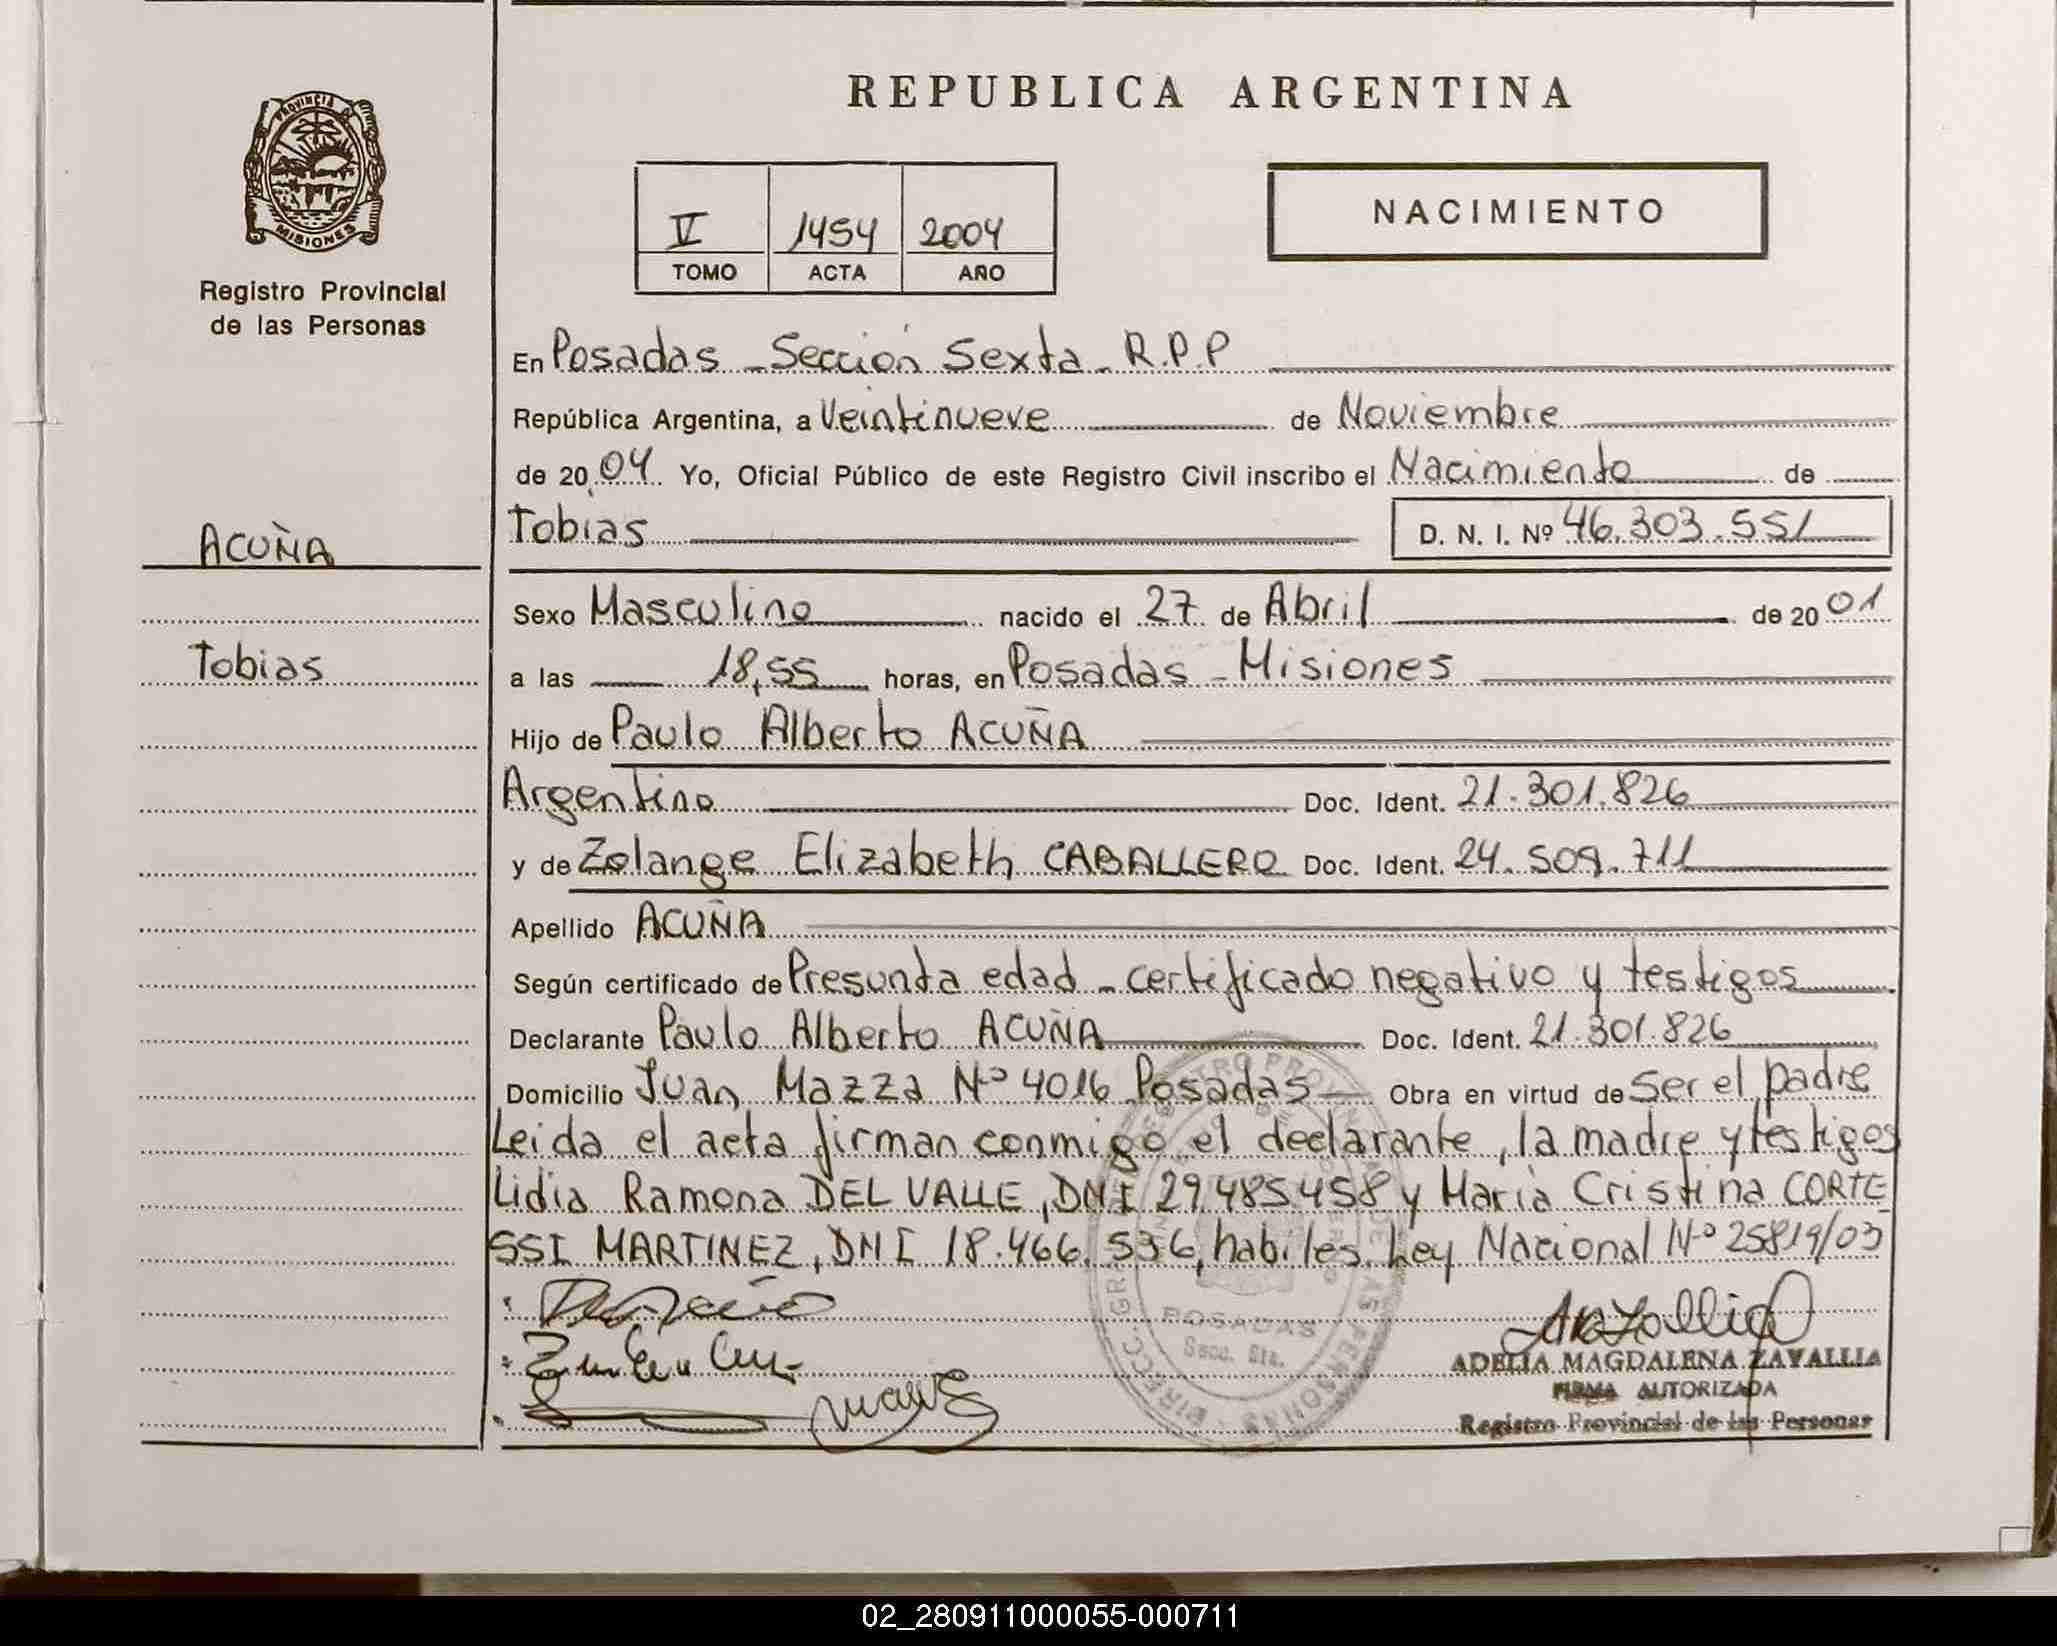 REPUBLICA ARGENTINA
PROVINCIA
MISIONES
Registro Provincial
de las Personas
V 1454 2004
TOMO ACTA AÑO
NACIMIENTO
En Posadas - Sección Sexta - R.P.P
República Argentina, a Veintinueve de Noviembre
de 20 04 Yo, Oficial Público de este Registro Civil inscribo el Nacimiento de
ACUÑA
Tobias
Tobias D. N. I. Nº 46.303.551
Sexo Masculino nacido el 27 de Abril de 20 01
a las 18,55 horas, en Posadas - Misiones
Hijo de Paulo Alberto ACUÑA
Argentino Doc. Ident. 21.301.826
y de Zolange Elizabeth CABALLERO Doc. Ident. 24.509.711
Apellido ACUÑA
Según certificado de Presunta edad - certificado negativo y testigos
Declarante Paulo Alberto ACUÑA Doc. Ident. 21.301.826
Domicilio Juan Mazza Nº 4016 Posadas Obra en virtud de Ser el padre
Leida el acta firman conmigo el declarante, la madre y testigos
Lidia Ramona DEL VALLE, DNI 29.485.458 y Maria Cristina CORTE
SSI MARTINEZ, DNI 18.466.536, habiles. Ley Nacional Nº 25819/03
POSADAS
Secc. 6ta.
ADELIA MAGDALENA ZAVALLIA
FIRMA AUTORIZADA
Registro Provincial de las Personas
02_280911000055-000711